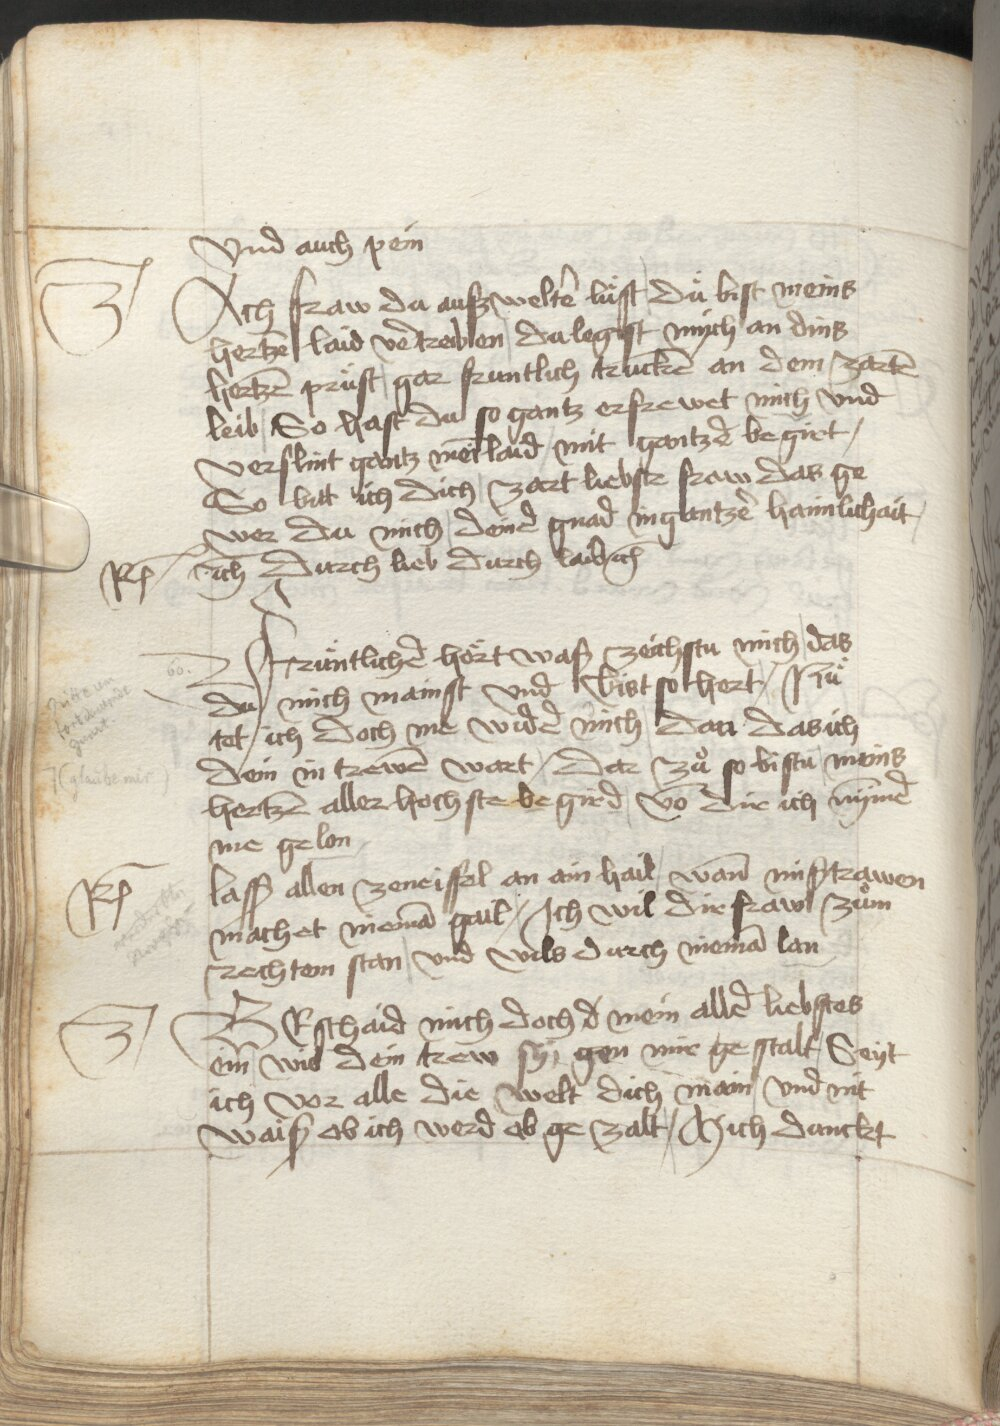 vnd auch pein
Ach fraw du auszweltē lüst / dü bist meins
hertzē laid v̄treiben / du legist mich an dins
hertzē prüst / gar fruntlich truckē an dem zartē
leib / So hast du so gantz erfrewet mich vnd
verslint gantz mei laid / mit gantzē begirt /
So bitt ich dich / zart liebste fraw das ge
wer du mich / deinē gnad in gantzē haimlichait /
Rep ich Durch lieb durch laid ich
60.
Fruntlichē hört wasz zeichstu mich / das
dü mich mainst vnd bist so hert / Nü
tet ich doch nie widē mich dan das ich
dein in trewē wart / Dar zů so bistu meins
7 (glaube mir)
hertzē aller hochste begird / vō dir ich nym̄ē
me gelon
Rep lassz allen zeneiffel an ain hail / wan̄ misztrawen
machet niemā gail / Ich wil dir fraw zům
rechtem stan / vnd wils durch niemā lan
BEschaid mich doch d mein allē liebstes
ein̄ wie dein trew sy / gen mir gestalt / Seyt
ich vor alle die welt dich main / vnd nit
waisz ob ich werd ab gezalt / Mich danckt